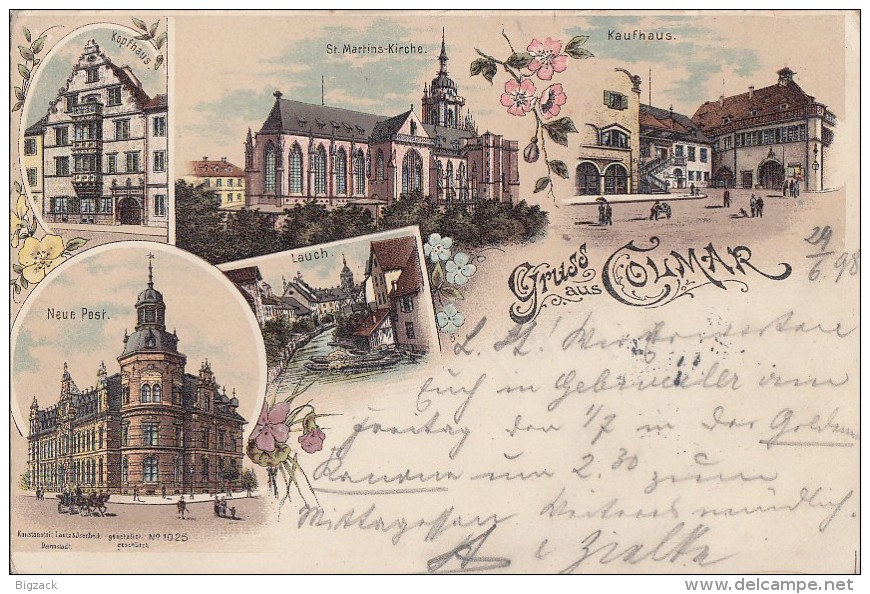 Kopfhaus.
St. Martins-Kirche.
Kaufhaus.
Lauch.
Neue Post.
Gruss
aus COLMAR
29/6 98
L. H.!
Euch in Gebweiler am
Freitag den 1/7 in der Golden
Kanone um 2.30 zum
Mittagessen Weiteres mündlich.
Kunstanstalt Lautz & Jsenbeck
Darmstadt.
gesetzlich
geschützt
No 1025
Bigzack
delcampe.net